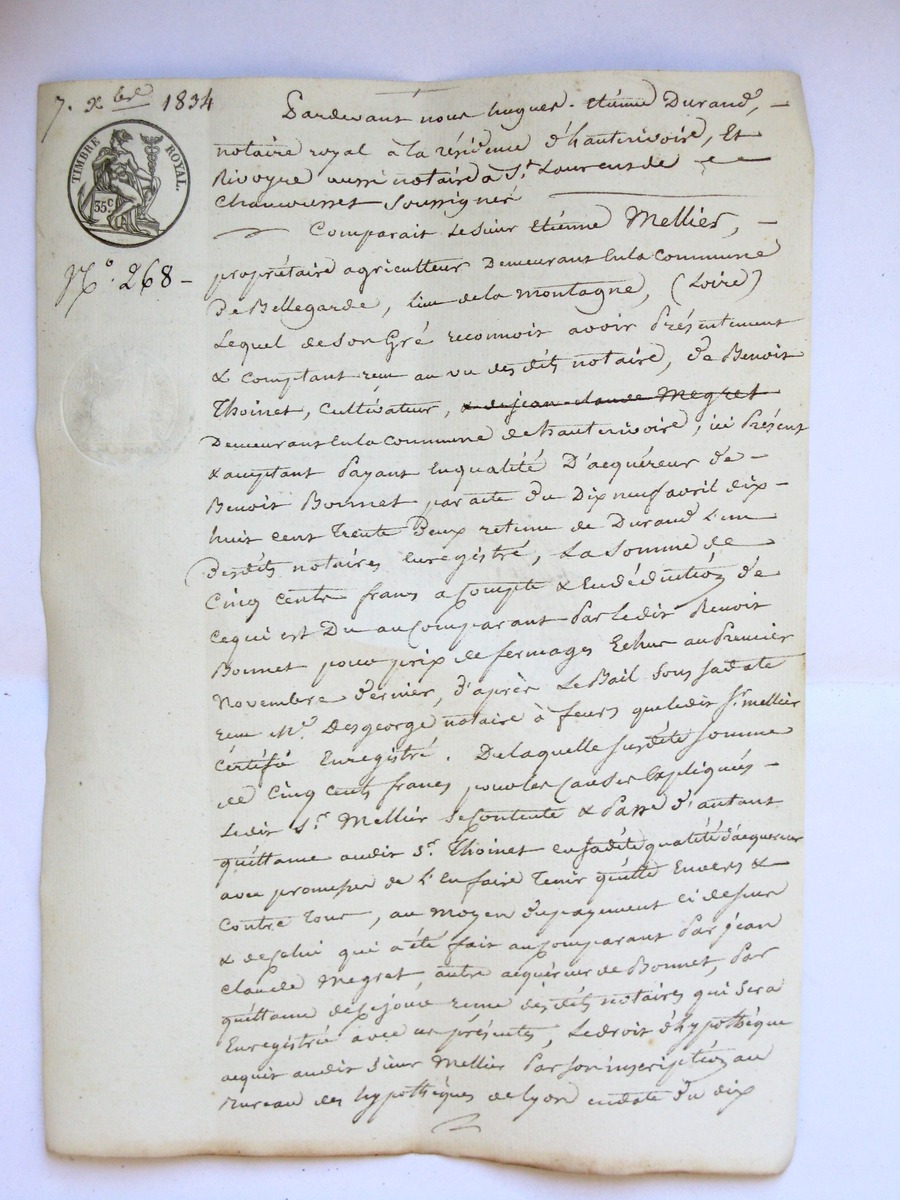 7. xbre 1834
TIMBRE ROYAL.
35c
No. 268 -
Pardevant nous hugues-etiénne Durand, -
notaire royal à la résidence d'hauterivoire, Et
Rivoyre aussi notaire à St. Laurens de
Chamousset soussignés
Comparait le sieur etiénne Mellier, -
propriétaire agriculteur demeurant en la commune
de Bellegarde, lieu de la montagne, (Loire)
Lequel de son Gré reconnoit avoir Présentement
& comptant reçu au vu desdits notaire, de Benoit
Thoinet, cultivateur, & de jean claude Megret
Demeurant en la commune de hauterivoire, ici Présent
& acceptant Payant En qualité D'acquéreur de -
Benoit Bonnet par acte du Dix neuf avril dix -
huit cent trente deux retenu de Durand L'un
desdits notaires enregistré, La somme de
Cinq cents francs a Compte & En déduction de
ce qui est Du au Comparant Par Ledit Benoit
Bonnet pour prix de fermages Echus au Premier
Novembre dernier, d'après Le Bail sous sa date
reçu Me. Desgeorge notaire à feurs que ledit Sr. mellier
certifié Enregistré. De laquelle susdite somme
de Cinq cents francs pour les causes Expliquées -
Ledit Sr. Mellier se Contente & Passe d'autant
quittance audit Sr. Thoinet en sadite qualité d'acquereur
avec promesse de L'En faire Tenir quitte Envers &
Contre Tous, au moyen du payement ci dessus
& de celui qui a été fait au Comparant Par jean
claude Megret, autre acquéreur de Bonnet, Par
quittance de ce jour reçue desdits notaires qui sera
Enregistrée avec ces présentes, Le droit d'hypothéque
acquit audit sieur Mellier Par son inscription au
Bureau des hypothéques de Lyon en date du dix